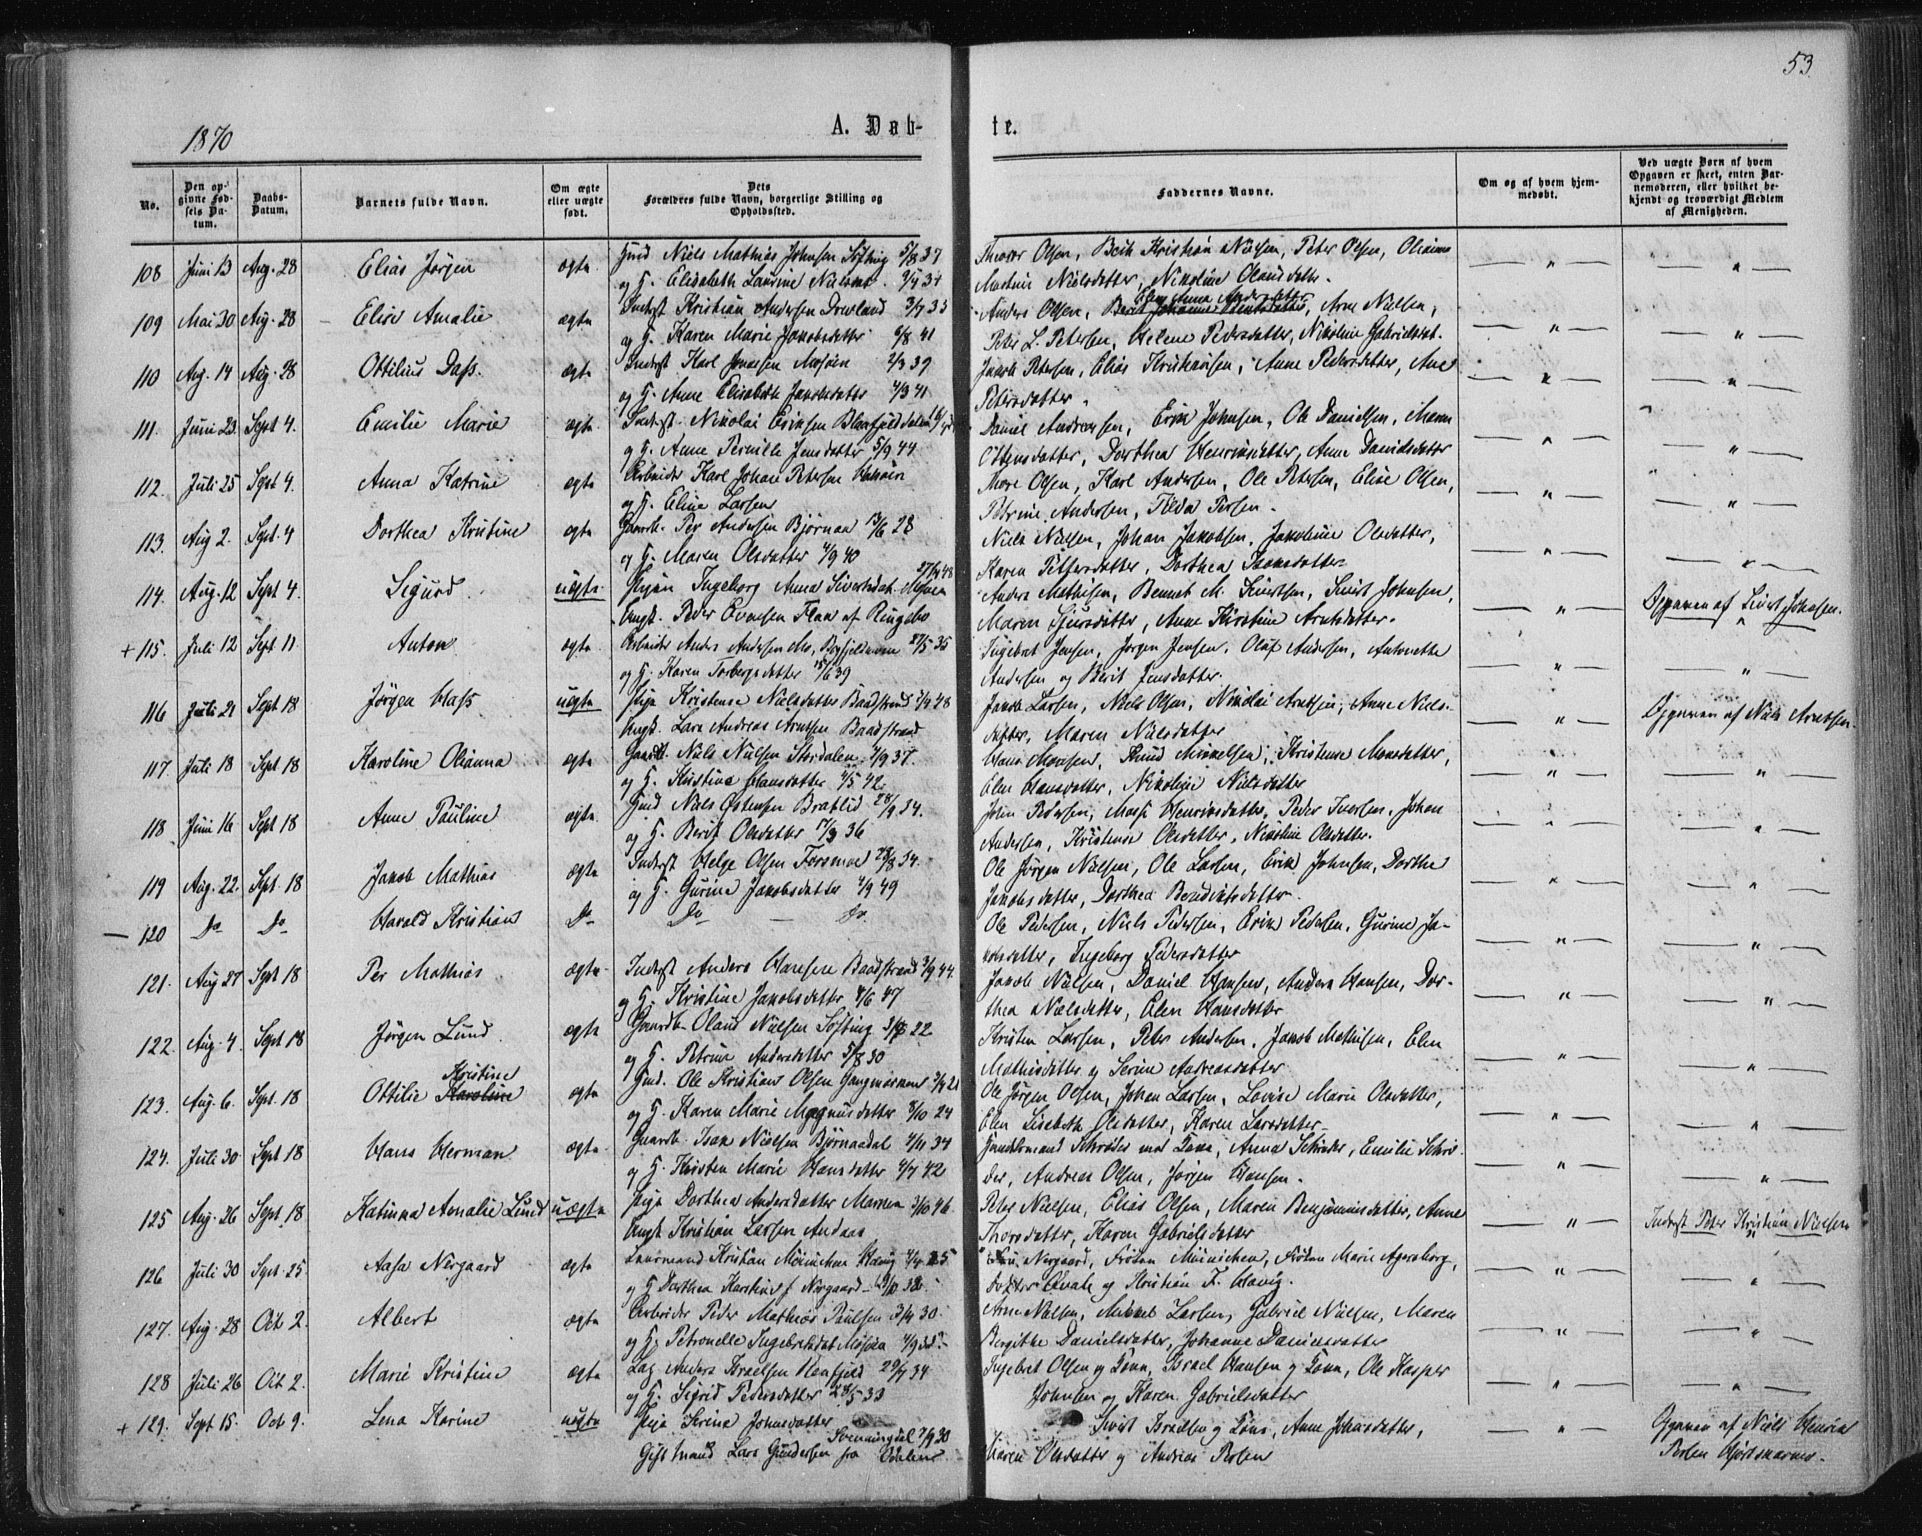 53
1870
A. Døb-
te.
No.
Den op-
givne Fød-
sels Da-
tum.
Daabs-
Datum.
Barnets fulde Navn.
Om ægte
eller uægte
født.
Dets
Forældres fulde Navn, borgerlige Stilling og
Opholdssted.
Faddernes Navne.
Om og af hvem hjem-
medøbt.
Ved uægte Børn af hvem
Opgaven er skeet, enten Bar-
nemoderen, eller hvilket be-
kjendt og troværdigt Medlem
af Menigheden.
108 Juni 13 Aug. 28 Elias Jørgen ægte Gmd Niels Mathias Johnsen Søfting 5/8 37 Thoror Olsen, Berit Kristian Nielsen, Peter Olsen, Oliane
og H. Elisabeth Laurine Nielsdat. Martine Nielsdatter, Nikoline Olausdatter.
109 Mai 30 Aug. 28 Elise Amalie ægte Inderst Kristian Andersen Drevland 3/7 33 Anders Olsen, Elen Anna Andersdatter, Arne Nielsen,
og H. Karen Marie Jakobsdatter 6/8 41 Peter L. Petersen, Helene Pedersdatter, Nikoline Gabrielsdat.
110 Aug. 14 Aug. 28 Ottilius Dass. ægte Inderst Karl Jonassen Mosjøen 2/3 39 Jakob Petersen, Elias Kristiansen, Anne Pedersdatter, Ane
og H. Anne Elisabeth Jakobsdatter 4/3 41 Petersdatter.
111. Juni 23. Sept 4. Emilie Marie ægte Inderst. Nikolai Eriksen Blaafjelddalen Daniel Andreassen, Erik Johnsen, Ole Danielsen, Maren
og H. Anne Pernille Jensdatter 5/9 44 Ottensdatter, Dorthea Henriksdatter, Anne Danielsdatter
112. Juli 25 Sept 4. Anna Katrine ægte Arbeider Karl Johan Petersen More Olsen, Karl Andersen, Ole Petersen, Elise Olsen,
og H. Eline Larsen Petrine Andersen, Tilda Persen.
113. Aug 2. Sept. 4 Dorthea Kristine ægte Gaardb. Per Andersen Bjørnaa 13/6 28 Niels Nielsen, Johan Jakobsen, Jakobine Olsdatter,
og H. Maren Olsdatter 4/9 40 Karen Pettersdatter, Dorthea Isaksdatter
114. Aug. 12 Sept 4. Sigurd. uægte. Pigen Ingeborg Anna Sivertsdat. Anders Mathisen, Bennet M. Sivertsen, Sivert Johnsen, Opgaven af Sivert Johnsen.
Ungk. Peder Evensen Flaa af Ringebo Maren Sjursdatter, Anne Kirstine Arntsdatter.
+ 115. Juli 12 Sept 11. Anton ægte Arbeider Anders Andersen Mo, 27/5 35 Ingebret Jensen, Jørgen Jensen, Oluf Andersen, Antonette
og H. Karen Torbergsdatter 15/6 39 Andersen og Berit Jensdatter.
116 Juli 21 Sept 18 Jørgen Hass uægte Pige Kristense Nielsdatter Baadstrand 7/4 48 Jakob Larsen, Niels Olsen, Nikolai Arntsen, Anne Niels- Opgaven af Niels Arntsen.
Ungk. Lars Andreas Arntsen Baadstrand datter, Maren Nielsdatter
117. Juli 18 Sept 18 Karoline Olianna ægte Gaardb. Niels Nielsen Stordalen 7/9 37. Hans Monsen, Knud Mikkelsen, Kristense Monsdatter,
og H. Kristine Hansdatter 4/5 42. Elen Hansdatter, Nikoline Nielsdatter
118 Juni 16 Sept 18 Anne Pauline ægte Gmd Niels Østensen Bratlid 28/9 34. John Pedersen, Marit Henriksdatter, Peder Iversen, Johan
og H. Berit Olsdatter 17/3 36 Andersen, Kristense Olsdatter, Nikoline Olsdatter.
119 Aug. 22. Sept. 18 Jakob Mathias ægte Inderst Helge Olsen Forsmoe 28/8 34. Ole Jørgen Nielsen, Ole Larsen, Erik Johnsen, Dorthe
og H. Gurine Jakobsdatter 4/9 49 Jakobsdatter, Dorthea Benediktsdatter.
— 120 Do Do Harald Kristian Do Do — Do. Ole Pedersen, Niels Pedersen, Erik Pedersen, Gurine Ja-
kobsdatter, Ingeborg Pedersdatter
121. Aug 27 Sept 18 Per Mathias ægte Inderst Anders Hansen Baadstrand 3/9 44. Jakob Nielsen, Daniel Hansen, Anders Hansen, Dor-
og H. Kristine Jakobsdatter 4/6 47 thea Nielsdatter, Elen Hansdatter
122. Aug. 4. Sept 18 Jørgen Lund. ægte Gaardb. Olaus Nielsen Søfting 22 Kristen Larsen, Peter Andersen, Jakob Mathisen, Elen
og H. Petrine Andersdatter 5/8 30 Mathisdatter og Serine Andreasdatter
Kristine
123. Aug. 6. Sept. 18 Ottilie Karoline ægte Gmd. Ole Kristian Olsen 3/4 21 Ole Jørgen Olsen, Johan Larsen, Lovise Marie Olsdatter,
og H. Karen Marie Magnusdatter 8/10 24 Elen Lisebeth Olsdatter, Karen Larsdatter
124. Juli 30. Sept 18 Hans Herman ægte Gaardb. Isak Nielsen Bjørnaadal 4/11 34 Handelsmand Schrøder med Kone, Anna Schrøder, Emilie Schrø-
og H. Kirsten Marie Hansdatter 4/7 42 der, Andreas Olsen, Jørgen Hansen.
125 Aug. 26 Sept. 18 Katinka Amalie Lund uægte Pige Dorthea Andersdatter Marnen 3/10 46. Peter Nielsen, Elias Olsen, Maren Benjaminsdatter, Anne Inderst Peter Kristian Nielsen
Ungk Kristian Larsen Andaas Thorsdatter, Karen Gabrielsdatter
126 Juli 30 Sept. 25 Aasa Nergaard ægte Lensmand Kristian Münnichen Havig 4/4 25 Fru Nergaard, Frøken Münnichen, Frøken Marie Agersborg,
og H. Dorthea Karstine f. Nergaard Doktor Qvale og Kristian F. Havig.
127. Aug. 28 Oct 2. Albert ægte Arbeider Peder Mathias Paulsen 3/4 30. Arne Nielsen, Mikkel Larsen, Gabriel Nielsen, Maren
og H. Petronelle Ingebrigtsdat Mosjøen Bergithe Danielsdatter, Johanne Danielsdatter
128 Juli 26 Oct 2. Marie Kristine ægte Lag Anders Israelsen 29/7 34 Ingebret Olsen og Kone, Israel Hansen og Kone, Ole Kasper
og H. Sigrid Pedersdatter 28/5 33 Johnsen og Karen Gabrielsdatter
+ 129. Sept 15. Oct 9. Lena Karine uægte Pige Serine Johnsdatter Sivert Israelsen og Kone, Anne Johnsdatter, Opgaven af Niels Henrik
Svenningdal 7/9 30
Gift Mand Lars Gundersen fra Odalen Karen Olsdatter og Andreas Persen Persen